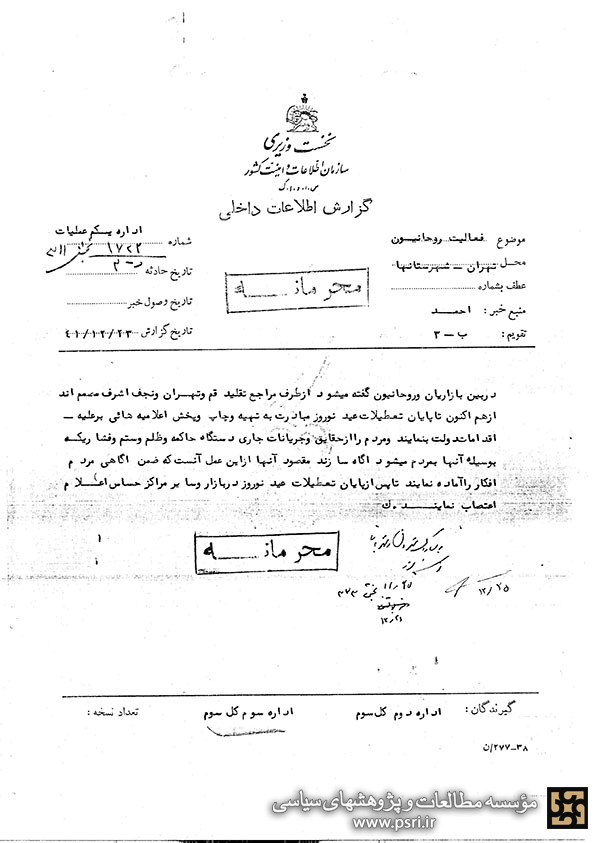 نخست وزیری
سازمان اطلاعات و امنیت کشور
س.ا.و.ا.ک
گزارش اطلاعات داخلی
موضوع فعالیت روحانیون
محل تهران ــ شهرستانها
عطف بشماره
منبع خبر: احمد
تقویم: ب ــ ۳
محرمانـــه
اداره یکم عملیات
شماره ۱۷۲۲
تاریخ حادثه
تاریخ وصول خبر
تاریخ گزارش ۴۱/۱۲/۲۳
دربین بازاریان وروحانیون گفته میشود ازطرف مراجع تقلید قم وتهران ونجف اشرف مصمم اند
ازهم اکنون تاپایان تعطیلات عید نوروز مبادرت به تهیه وچاپ وپخش اعلامیه هائی برعلیه ــ
اقدامات دولت بنمایند ومردم راازحقایق وجریانات جاری دستگاه حاکمه وظلم وستم وفشاریکه
بوسیله آنها بمردم میشود آگاه سازند مقصود آنها ازاین عمل آنست که ضمن آگاهی مردم
افکار راآماده نمایند تاپس ازپایان تعطیلات عید نوروز دربازار وسایر مراکز حساس اعلام
اعتصاب نمایند. ك
محرمانـــه
۱۲/۲۵
گیرندگان: اداره دوم کل سوم اداره سوم کل سوم تعداد نسخه:
۳۸ــ۲۷۷/ن
مؤسسه مطالعات و پژوهشهای سیاسی
www.psri.ir